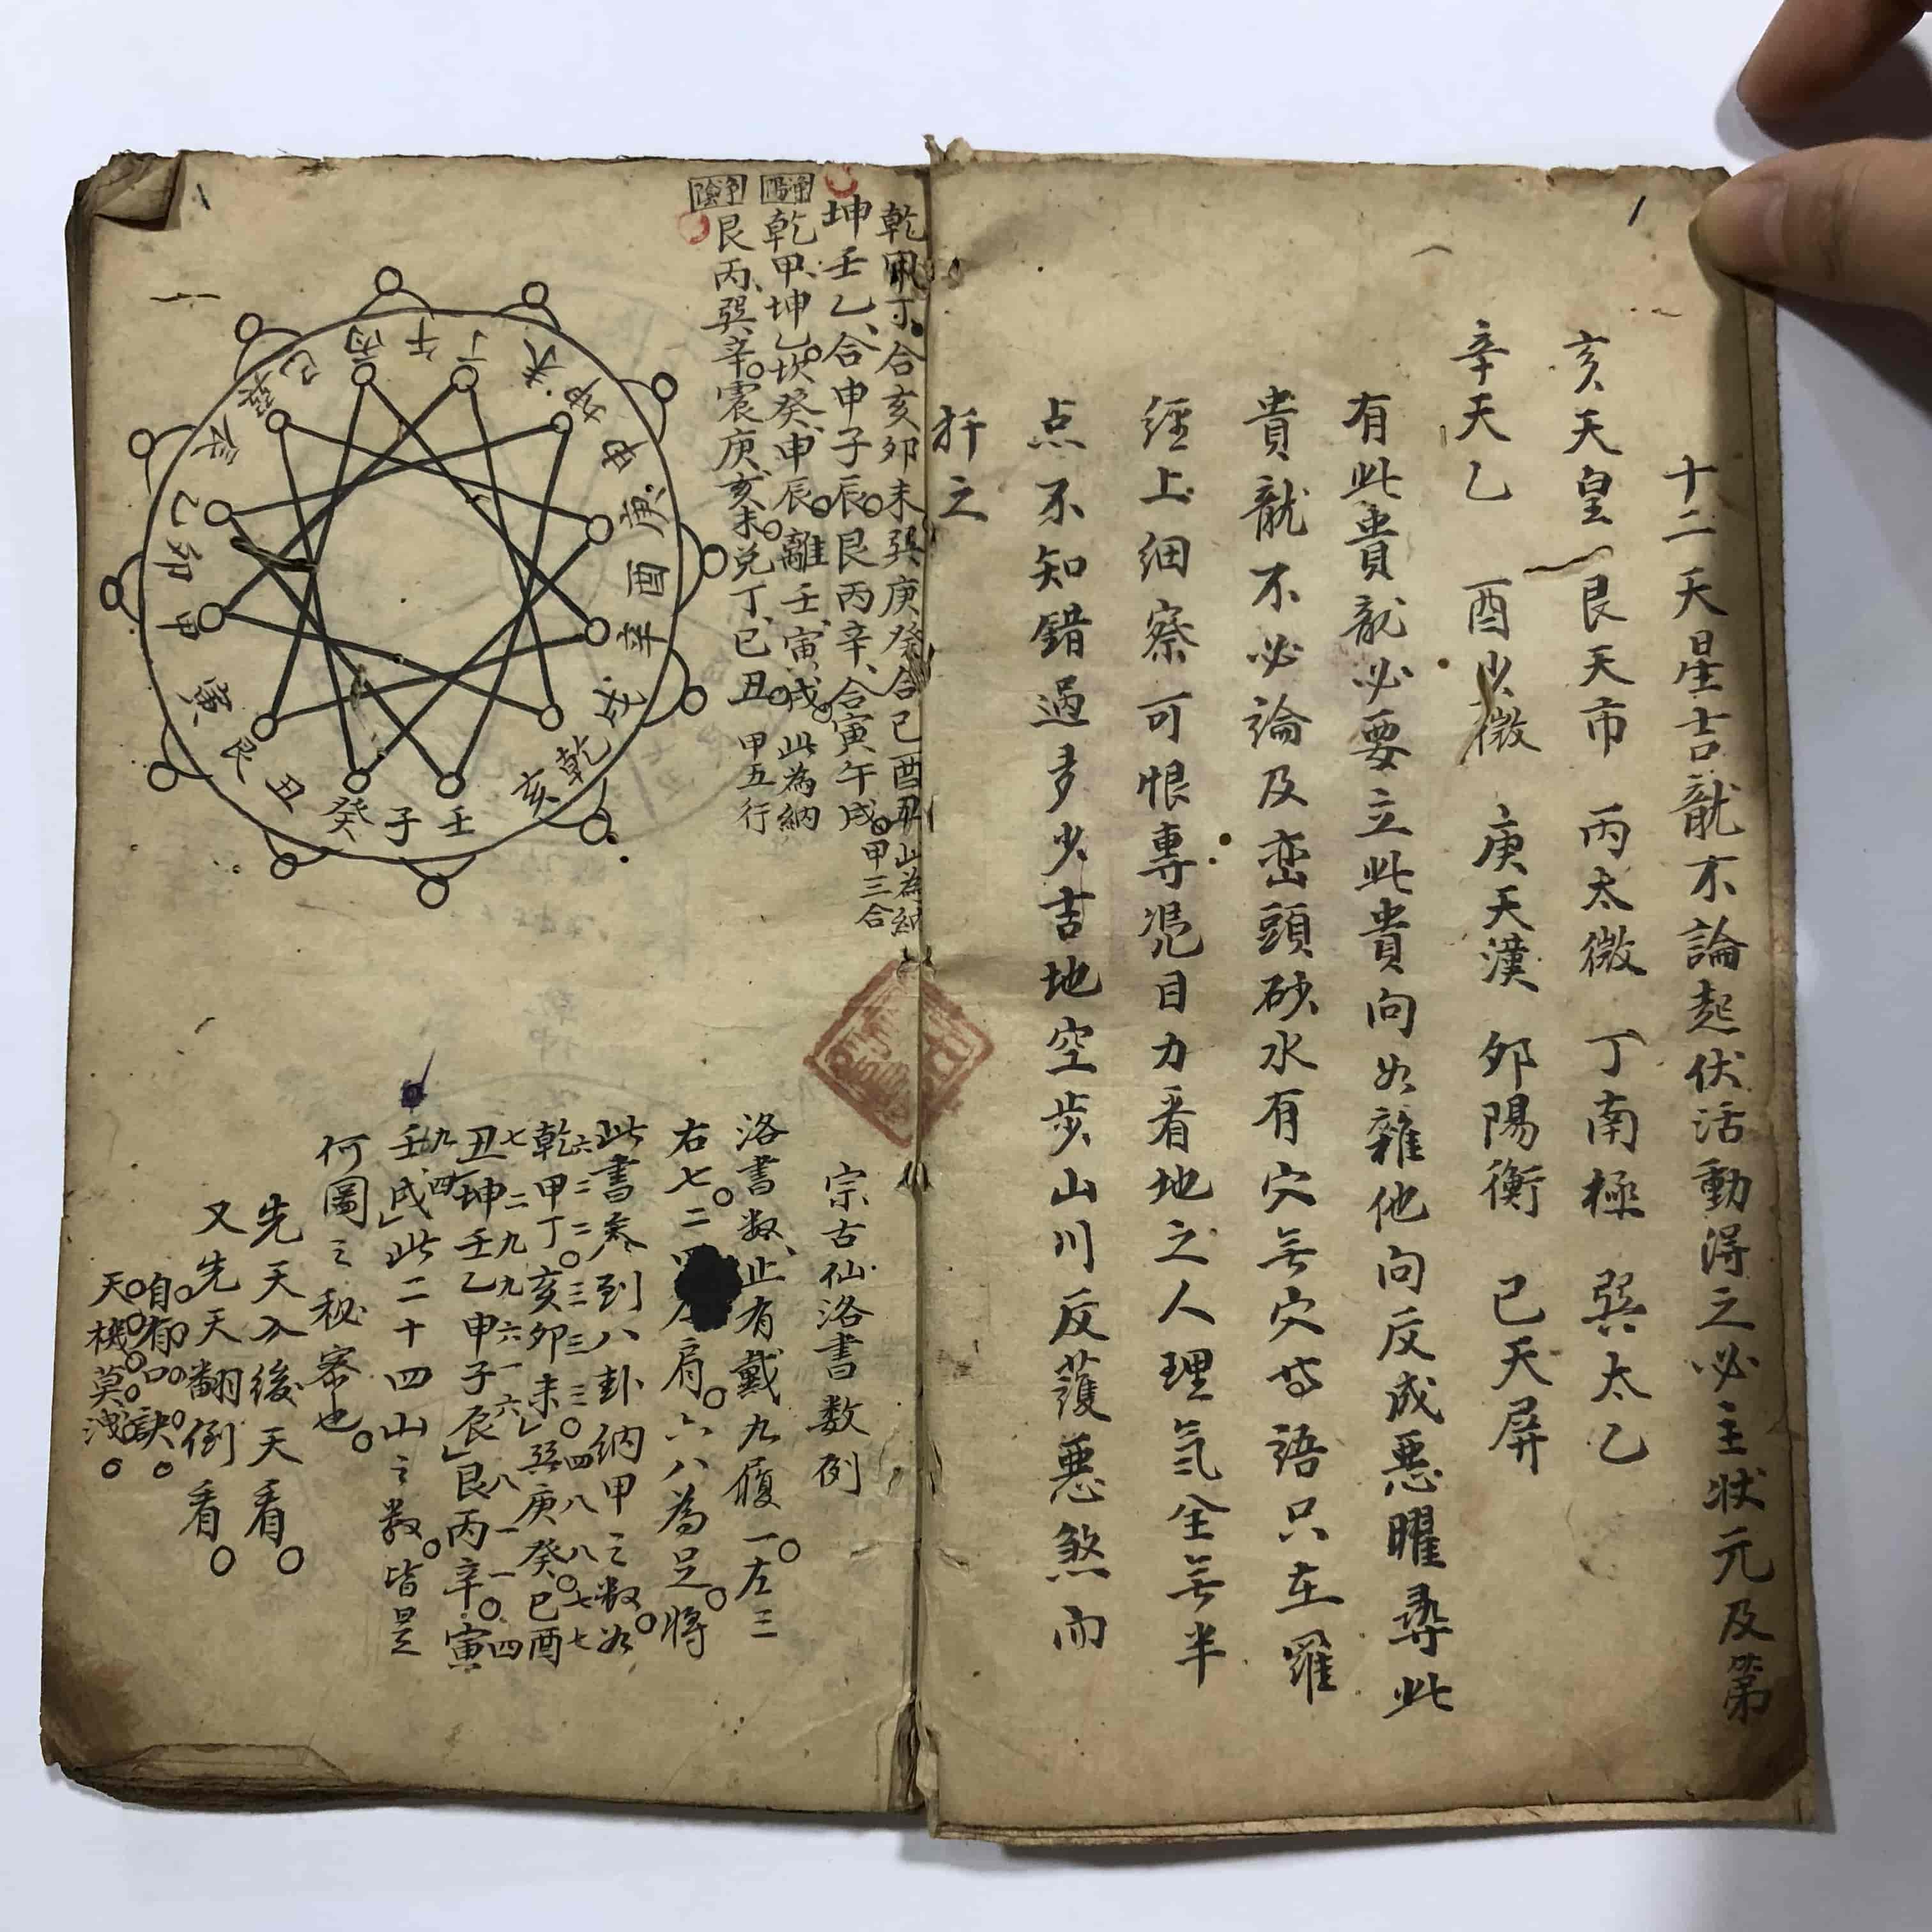 十二天星吉龍不論起伏活動得之必主狀元及第
亥天皇 艮天市 丙太微 丁南極 巽太乙
辛天乙 酉少微 庚天漢 卯陽衡 巳天屏
有此貴龍必要立此貴向如雜他向反成惡曜尋此
貴龍不必論及巒頭砂水有穴無穴等語只在羅
經上細察可恨專凴目力看地之人理氣全無半
点不知錯過多少吉地空步山川反護惡煞而
扦之
乾甲丁。合亥卯未巽庚癸合巳酉丑此為納
坤壬乙、合申子辰。艮丙辛、合寅午戌。甲三合
淨陽
乾甲、坤乙。坎癸、申辰。離壬、寅戌。此為納
淨陰
艮丙、巽辛。震庚、亥未。兌丁、巳丑。甲五行
丙 午 丁 未 坤 申 庚 酉 辛 戌 乾 亥 壬 子 癸 丑 艮 寅 甲 卯 乙 辰 巽 巳
宗古仙洛書数例
洛書数、止有戴九履一。左三
右七。二四肩。六八為足。將
此書叅到八卦納甲之数。如
六三二。三三三。四八八。七七
乾甲丁。亥卯未」巽庚癸巳酉
七二九九六一六八一一。四
丑坤壬乙申子辰」艮丙辛。寅
九四
壬、戌」此二十四山之数。皆是
何圖之秘密也。
先天入後天看。
又先天翻倒看。
自有口訣。
天機莫洩。